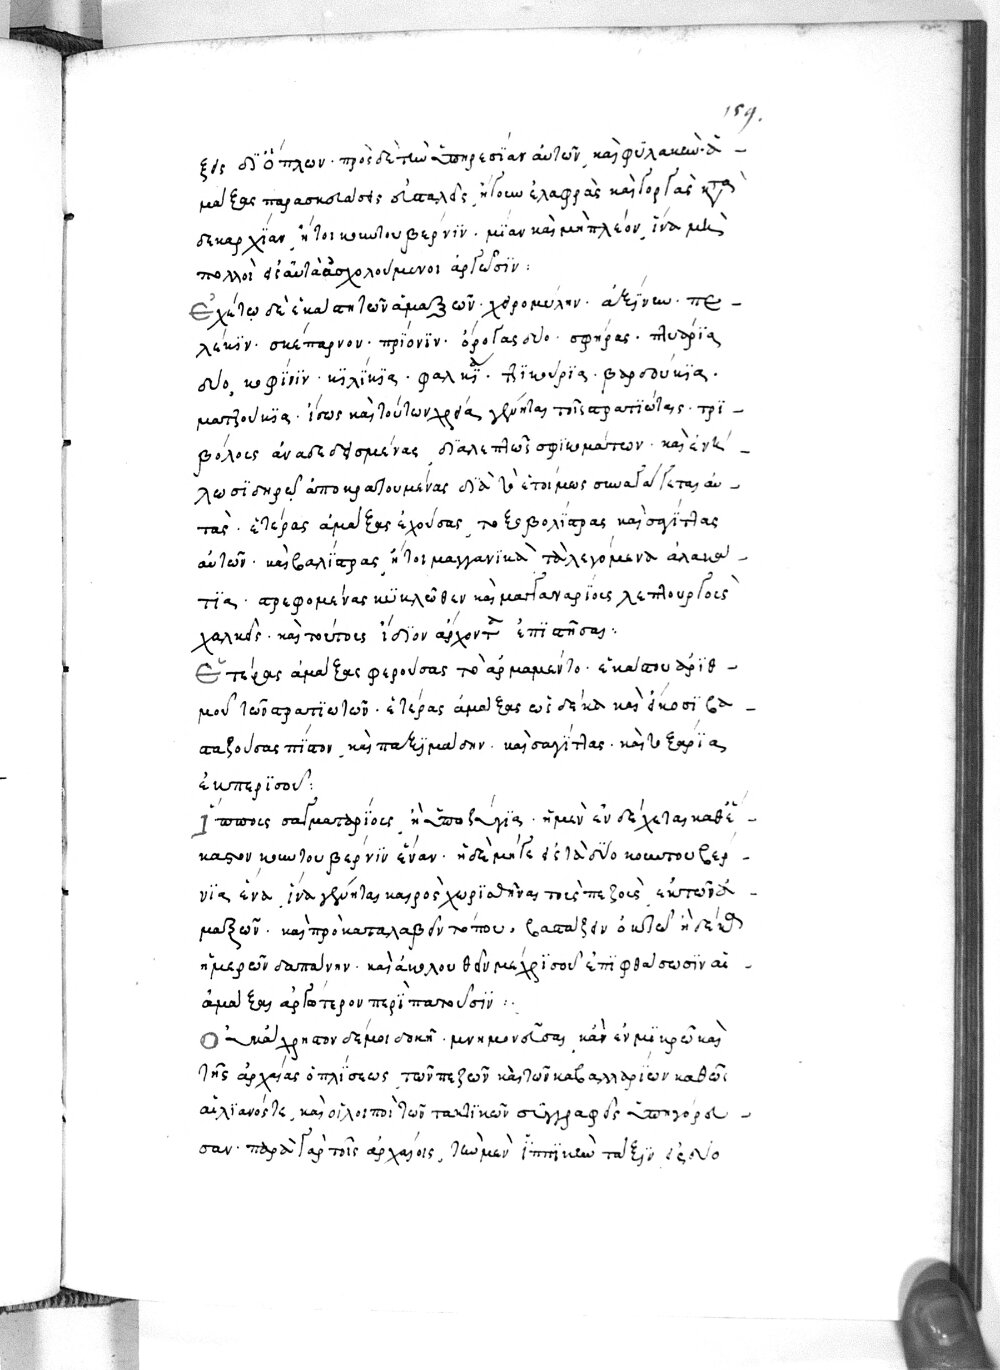 159.
ξεις δι' ὅπλων· πρὸς δὲ τὴν ὑπηρεσίαν αὐτῶν, καὶ φυλακὴν ἁ-
μάξας παρασκευάσεις ἁπαλὰς, ἤγουν ἐλαφρὰς καὶ γοργὰς κατὰ
δεκαρχίαν, ἤτοι κοντουβέρνιν· μίαν καὶ μὴ πλέον, ἵνα μὴ
πολλοὶ εἰς αὐτὰ ἀσχολούμενοι ἀργῶσιν:
Ἐχέτω δὲ ἑκάστη τῶν ἁμαξῶν· χειρομύλην· ἀξίνην· πε-
λέκιν· σκέπαρνον· πριόνιν· ὄρυγας δύο· σφύρας· πτυάρια
δύο, κοφίνιν· κιλίκια· φαλκί· λικούρια· βαρδούκια·
ματζούκια· ἴσως καὶ τούτων χρεία γένηται τοῖς στρατιώταις· τρι-
βόλους ἀναδεδεμένας, διὰ λεπτῶν σφικωμάτων· καὶ ἐν ἥ-
λῳ σιδηρῷ ἀποκρατουμένας διὰ τὸ ἑτοίμως συνάγεσθαι αὐ-
τάς· ἑτέρας ἁμάξας ἐχούσας, τοξοβολίστρας καὶ σαγίττας
αὐτῶν· καὶ βαλίστρας, ἤτοι μαγγανικὰ τὰ λεγόμενα ἀλακά-
τια· στρεφομένας κύκλωθεν καὶ μαγγαναρίους λεπτουργοὺς
χαλκεῖς· καὶ τούτοις ἴδιον ἄρχοντα ἐπιστῆσαι:
Ἑτέρας ἁμάξας φερούσας τὸ ἀρμαμέντο· ἑκάστου ἀριθ-
μοῦ τῶν στρατιωτῶν· ἑτέρας ἁμάξας ὡς δέκα καὶ εἴκοσι βα-
σταζούσας σίτον, καὶ παξιμάδιν· καὶ σαγίττας· καὶ τοξάρια
ἐκ περισσοῦ:
Ἵππους σαγματαρίους, ἢ ὑποζύγια· ἢ μὲν ἐνδέχεται καθ' ἕ-
καστον κοντουβέρνιν ἕναν· ἢ δὲ μήγε εἰς τὰ δύο κοντουβέρ-
νια ἕνα, ἵνα γένηται καιρὸς χωρισθῆναι τοῖς πεζοῖς, ἐκ τῶν ἁ-
μαξῶν· καὶ προκαταλαβεῖν τόπον, βαστάξειν ὀκτὼ ἢ δέκα
ἡμερῶν δαπάνην· καὶ ἀκολουθεῖν μέχρις οὗ ἐπιφθάσωσιν αἱ
ἅμαξαι ἀργότερον περιπατοῦσιν:
Οὐκ ἄχρηστον δέ μοι δοκῇ· μνημονεῦσαι, κἂν ἐν μικρῷ καὶ
τῆς ἀρχαίας ὁπλίσεως, τῶν πεζῶν καὶ τῶν καβαλλαρίων καθὼς
αἰλιανός τε, καὶ οἱ λοιποὶ τῶν τακτικῶν συγγραφεῖς ὑπηγόρευ-
σαν· παρὰ γὰρ τοῖς ἀρχαίοις, τὴν μὲν ἱππικὴν τάξιν εἰς δύο